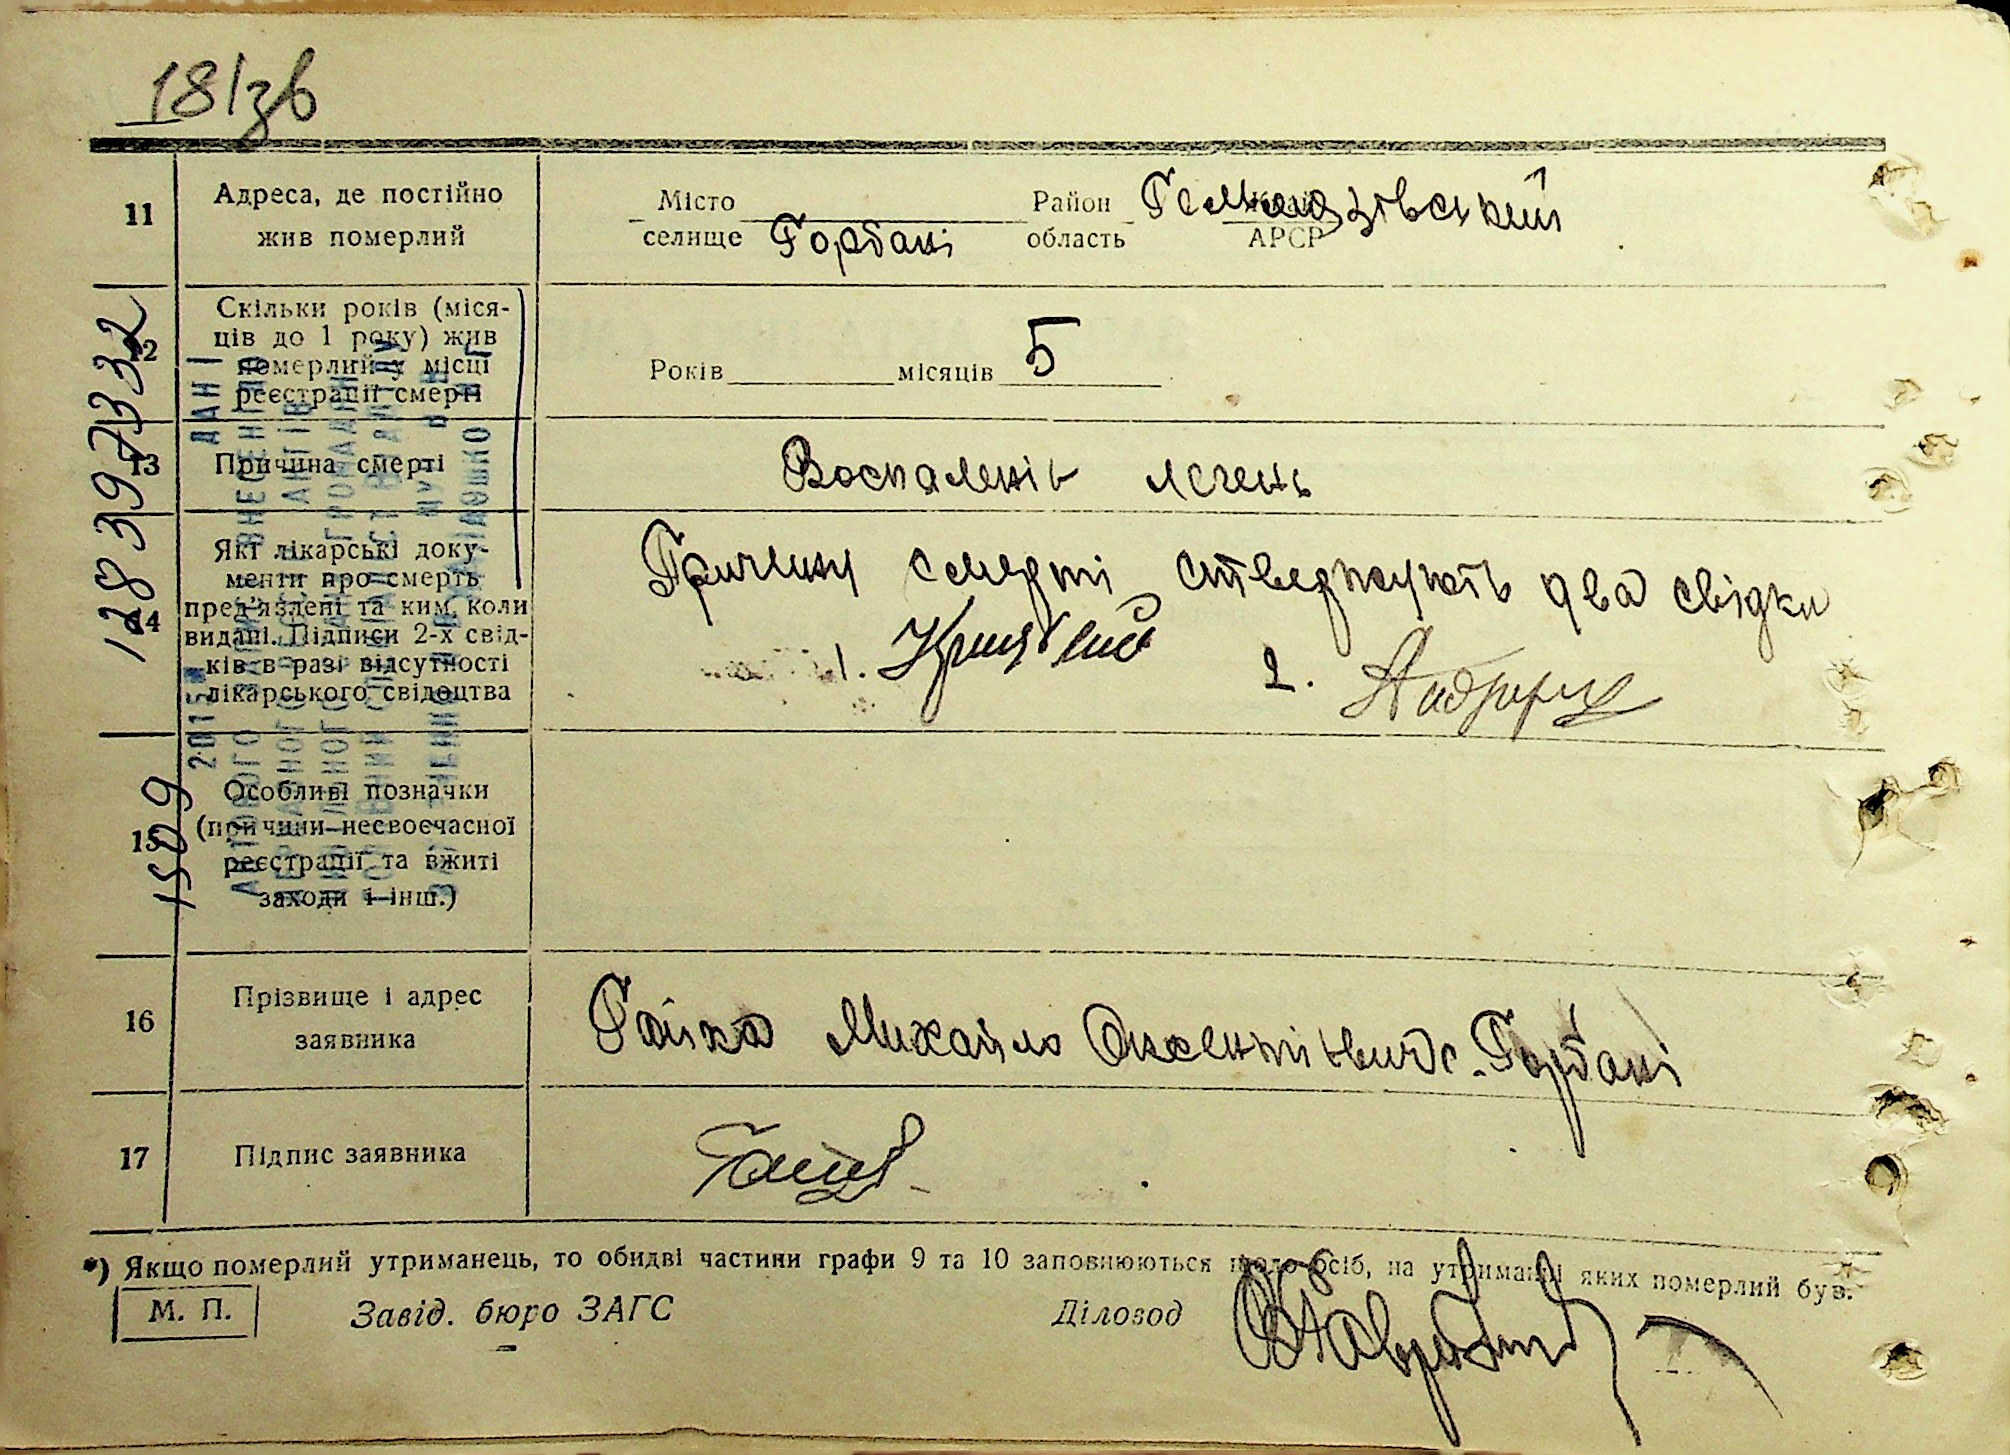 181зв
11
Адреса, де постійно
жив померлий
Місто
селище Горбані
Район
область
Гельмязівський
АРСР
12
Скільки років (міся-
ців до 1 року) жив
померлий у місці
реєстрації смерті
Років місяців 5
13
Причина смерті
Воспаленів легень
14
Які лікарські доку-
менти про смерть
пред'явлені та ким, коли
видані. Підписи 2-х свід-
ків в разі відсутності
лікарського свідоцтва
Причину смерті стверджують два свідки
1.
2.
15
Особливі позначки
(причини несвоєчасної
реєстрації та вжиті
заходи і інш.)
16
Прізвище і адрес
заявника
Гайка Михайло Оксентієвич с. Горбані
17
Підпис заявника
*) Якщо померлий утриманець, то обидві частини графи 9 та 10 заповнюються щодо осіб, на утриманні яких померлий був.
М. П.
Завід. бюро ЗАГС
Діловод
12839397332
1509
2015
ДАНІ
ВНЕСЕНІ ДО